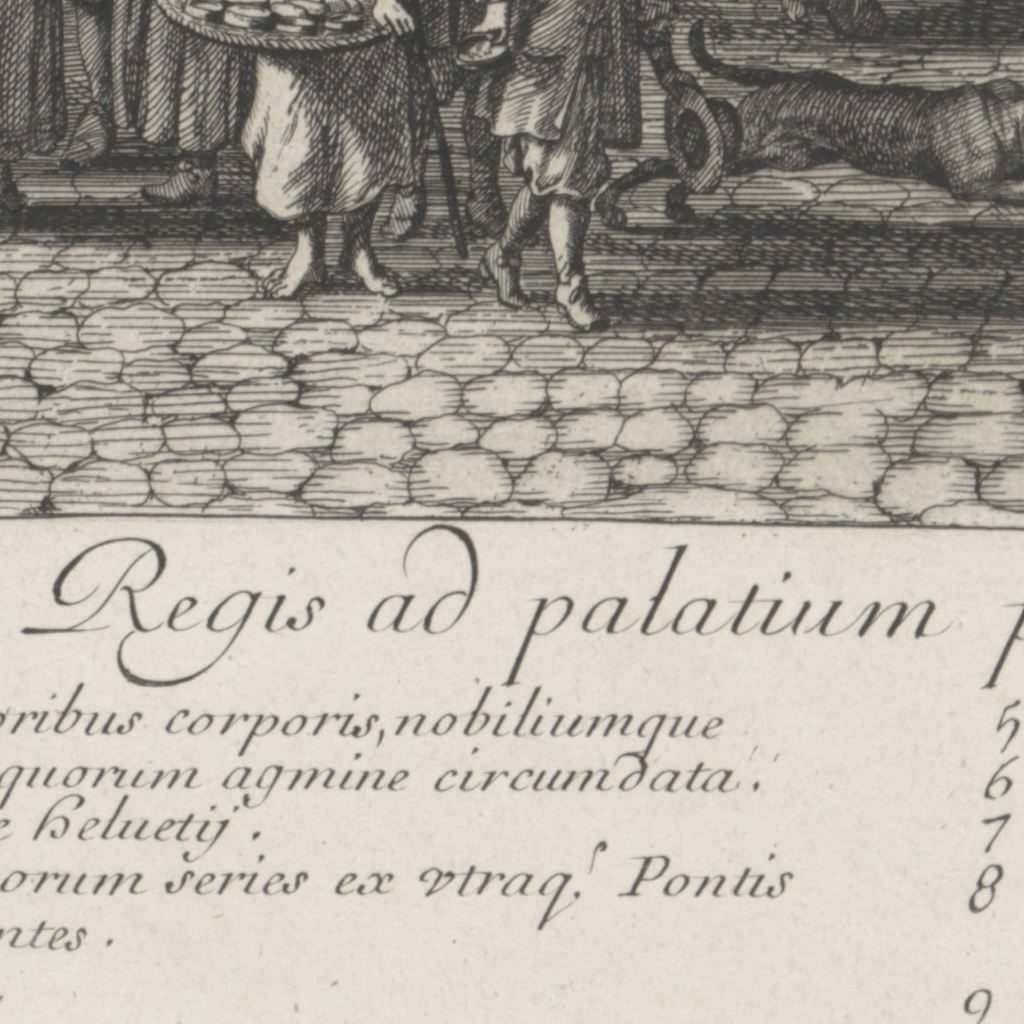 Regis ad palatium p
oribus corporis, nobiliumque 5
quorum agmine circumdata. 6
e heluetij. 7
orum series ex vtraq; Pontis 8
ntes.
9